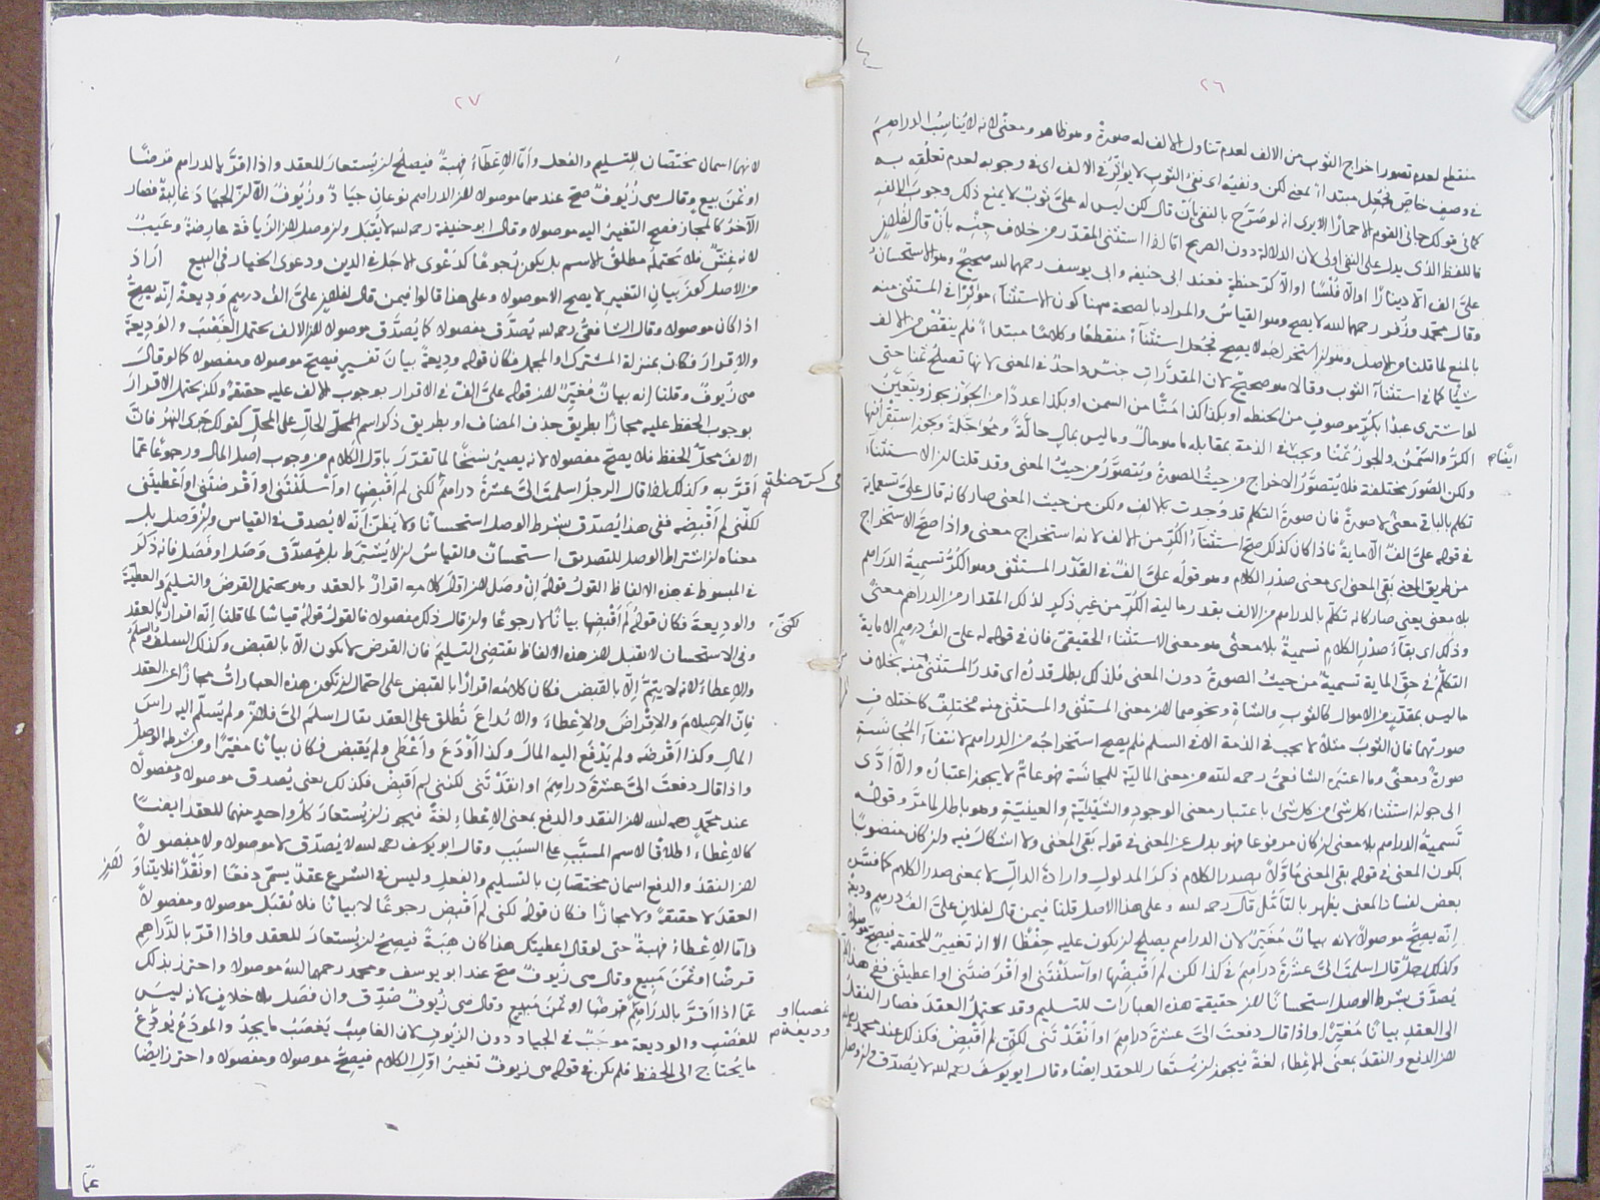 ٢٦
منقطع لعدم تصور اخراج الثوب من الالف لعدم تناول الالف له صورةً وهو ظاهر ومعنًى لانه لا يُناسِبُ الدراهمَ
في وصفٍ خاصٍّ فجُعِل مبتدأً بمعنى لكن ونفيُه اى نفيُ الثوبِ لا يؤثّرُ في الالف اى في وجوبه لعدم تعلّقِه به
كما في قولك جاءني القوم الا حمارًا الا يرى انه لو صَرَّح بالنفى بأن قال لكن ليس له علىَّ ثوبٌ لا يمنع ذلك وجوبَ الالفِ
فاللفظ الذى يدل على النفى اولى لان الدلالة دون الصريح امّا اذا استثنى المقدَّر من خلاف جنسِه بأنْ قال لفلانٍ
علىَّ الف الّا دينارًا او الّا فَلْسًا او الّا كرَّ حنطةٍ فعند ابى حنيفه وابى يوسف رحمهما لله صحيحٌ وهو الاستحسانُ
وقال محمّد وزُفَر رحمهما لله لا يصح وهو القياسُ والمراد بالصحة ههنا كون الاستثناء مؤثرًا في المستثنى منه
بالمنع لما قلنا من الاصل وهو ان استخراجَه لا يصح فجُعل استثناءً منقطعًا وكلامًا مبتدأً فلم ينقُصْ من الالف
شيئًا كما في استثناء الثوب وقالا هو صحيحٌ لان المقدَّراتِ جنسٌ واحدٌ في المعنى لانها تصلُح ثمنًا حتى
لو اشترى عبدًا بكُرٍّ موصوفٍ من الحنطه او بكذا كذا مَنًّا من السمن او بكذا عددًا من الجَوْز يجوز ويتعَيَّنُ
الكرُّ والسَّمْنُ والجوزُ ثمنًا ويجب في الذمة بمقابله ما هو مالٌ وما ليس بمالٍ حالَّةً ومُؤجَّلةً ويجوز استقراضُها
ولكن الصُّوَر مختلفة فلا يُتصوَّرُ الاخراج من حيثُ الصورةُ ويُتصوَّرُ من حيثُ المعنى وقد قلنا ان الاستثناءَ
تكلم بالباقى معنًى لا صورةً فان صورةَ التكلم قد وُجدت بالالف ولكن من حيث المعنى صار كانه قال علىَّ تسعماية
في قوله علىَّ الفٌ الا مايةً فاذا كان كذلك صحّ استثناءُ الكُرِّ من الالف لانه استخراج معنى واذا صحّ الاستخراج
من طريق المعنى بقى المعنى اى معنى صدْرِ الكلام وهو قوله علىَّ الفٌ في القَدْر المستثنى وهو الكرُّ تسميةَ الدراهمِ
بلا معنى يعنى صار كانه تكلّم بالدراهم من الالف بقدر مالية الكُرِّ من غير ذكرٍ لذلك المقدار من الدراهم معنًى
وذلك اى بقاءُ صدْرِ الكلام تسميةً بلا معنًى هو معنى الاستثناء الحقيقىّ فان في قوله له على الف درهمٍ الا مايةً
التكلّمُ في حقّ الماية تسميةٌ من حيثُ الصورةُ دون المعنى فلذلك بطل قدرُه اى قدرُ المستثنى منه بخلاف
ما ليس بمقدَّرٍ من الاموال كالثوب والشاةِ ونحوهما لان معنى المستثنى والمستثنى منه مختلِفٌ كاختلافِ
صورتهما فان الثوبَ مثلًا لا يجب في الذمة الا في السلم فلم يصح استخراجُه من الدراهم لانتفاء المُجانَسةِ
صورةً ومعنًى وما اعتبره الشافعىُّ رحمه لله من معنى الماليّة للمجانَسة ... لا يجوز اعتبارُه والّا ادّى
الى جواز استثناء كل شئ من كل شئ باعتبار معنى الوجودِ والشَّيئيّةِ والعينيّةِ وهو باطل لما مرّ وقوله
تسميةُ الدراهم بلا معنى ان كان مرفوعا فهو بدل عن المعنى في قوله بقى المعنى ولا اشكال فيه وان كان منصوبًا
يكون المعنى في قوله بقى المعنى مُاوَّلًا بصدر الكلام ذكرَ المدلولِ وارادةَ الدالِّ لا بمعنى صدر الكلام كما فسَّر
بعض لفساد المعنى يظهر بالتأمّل قال رحمه لله وعلى هذا الاصل قلنا فيمن قال لفلانٍ علىَّ الفُ درهمٍ وديعةً
إنّه يصحُّ موصولًا لانه بيانٌ مُغَيِّرٌ لان الدراهم يصلح ان يكون عليه حِفْظًا الا انه تغييرٌ للحقيقة فيصحّ موصولًا
وكذلك رجلٌ قال اسلمتَ الىَّ عشرَةَ دراهمَ في كذا لكن لم اَقْبِضْها او اَسْلَفْتَنى او اَقْرَضتَنى او اعطيتَنى ففى هذا كله
يُصدَّق بشرط الوصل استحسانًا لان حقيقة هذه العبارات للتسليم وقد يحتمِلُ العقدَ فصار النقلُ
الى العقدِ بيانًا مُغيِّرًا واذا قال دفعتَ الىَّ عشرةَ دراهمَ او اَنْقَدْتَنى لكنّى لم اَقْبِضْ فكذلك عند محمد رحمه لله
لان الدفع والنقدَ بمعنى الاعْطاء لغةً فيجوز ان يُستعارَ للعقد ايضًا وقال ابو يوسفَ رحمه لله لا يُصدّق وان وصل
ايضًا صح
٢٧
لانهما اسمان مختصّان للتسليم والفعل وأمّا الاِعْطَآءُ فهِبةٌ فيصلُح ان يُستعارَ للعقد واذا اقرَّ بالدراهم قرضًا
او ثمنَ بيعٍ وقال هى زُيُوفٌ صحّ عندهما موصولا لان الدراهم نوعانِ جيادٌ وزُيُوفٌ الّا ان الجيادَ غالبةٌ فصار
الآخَرُ كالمجاز فصح التغييرُ اليه موصولا وقال ابو حنيفة رحمه لله لا يُقبَل وان وصل لان الزيافةَ عارضةٌ وعَيبٌ
لانه غِشٌّ فلا تحتمِلُه مطلقُ الاسم بل يكون رُجوعًا كدَعْوى الاجل في الدين ودعوى الخيار في البيع اَرادَ
من الاصلِ كونَ بيانِ التغيير لا يصح الا موصولا وعلى هذا قالوا فيمن قال لفلانٍ علىَّ الفُ درهمٍ وديعةٌ إنّه يصحُّ
اذا كان موصولا وقال الشافعىُّ رحمه لله يُصدَّق مفصولا كما يُصدَّق موصولا لان الالف يحتمل الغصْبَ والوديعةَ
والاقرارَ فكان بمنزلة المشترك او المجمل فكان قوله وديعةٌ بيانَ تفسيرٍ فيصحّ موصولا ومفصولا كما لو قالَ
هى زيوفٌ وقلنا إنه بيانٌ مُغيِّرٌ لان قوله علىَّ الفٌ في الاقرار بوجوب الالف عليه حقيقةٌ ولكن يحتمل الاقرارَ
بوجوب الحفظ عليه مجازًا بطريق حذف المضاف او بطريق ذكر اسم المحلّ الحالِّ على المحلّ كقولك جَرى النهرُ فانّ
الالفَ محلُّ الحفظ فلا يصحّ مفصولا لانه يصير نسخًا لما تقرّرَ باوّل الكلام من وجوب اصل المال ورجوعًا عمّا
اَقرَّ به وكذلك اذا قال الرجلُ اسلمتَ الىَّ عشرَةَ دراهمَ لكنى لم اَقْبِضها او اَسْلفْتَنى او اَقْرضتَنى او اَعْطَيتَنى
في كرّ حنطة صح
لكنّى لم اَقْبِضْه ففى هذا يُصدّق بشرط الوصل استحسانًا ولا يَظُنّ اَنّه لا يُصدق في القياس وان وَصل بل
معناه ان اشتراط الوصل للتصديق استحسانٌ والقياسُ ان لا يُشترَط بل يُصدَّق وَصَل او فَصَل فانه ذكرَ
في المبسوط في هذه الالفاظ القولُ قولُه إنْ وصَل لان اوّل كلامه اقرارٌ بالعقد وهو يحتمل القرضَ والتسليم والعطيّةَ
والوديعةَ فكان قولُه لم اَقْبِضْها بيانًا لا رجوعًا وان قال ذلك مفصولا فالقولُ قولُه قياسًا لما قلنا إنّه اقرارٌ بالعقد
لكنّى
وفى الاستحسان لا يقبل لان هذه الالفاظ تقتضِى التسليمَ فان القرضَ لا يكون الّا بالقبض وكذلك السلفُ والسلَمُ
والاعطاء لانه لا يتمُّ إلّا بالقبض فكان كلامُه اقرارًا بالقبض على احتمال ان تكون هذه العباراتُ مجازًا عن العقد
فانّ الاسلامَ والاقراضَ والاعْطاءَ والايداعَ تُطلق على العقد يقال اسلَمَ الىَّ فلانٌ ولم يُسلِّم اليه راسَ
المالِ وكذا اَقْرضَه ولم يَدْفَع اليه المالَ وكذا اَوْدَعَ واَعْطى ولم يَقبِض فكان بيانًا مغيِّرًا ومن شرطه الوصلُ
واذا قال دفعتَ الىَّ عشرَةَ دراهِمَ او انقَدْتَنى لكننى لم اَقبِضْ فكذلك يعنى يُصدق موصولا ومفصولًا
عند محمّدٍ رحمه لله لان النقد والدفع بمعنى الاعْطاءِ لغةً فيجوز ان يُستعارَ كلُّ واحدٍ منهما للعقد ايضًا
كالاعْطاء اطلاقًا لاسم المسبَّب على السبَبِ وقال ابو يوسف رحمه لله لا يُصدّق لا موصولا ولا مفصولا
لان النقدَ والدفع اسمان مختصّان بالتسليم والفعلِ وليس في الشرع عقدٌ يسمّى دفعًا او نَقْدًا فلا يتناوَلانِ
العقدَ لا حقيقةً ولا مجازًا فكان قولُه لكنى لم اَقْبِض رجوعًا لا بيانًا فلا تُقبَل موصولا ومفصولًا
وامّا الاعْطاءُ فهبةٌ حتى لو قال اعطيتك هذا كان هِبةً فيصحُّ ان يُستعارَ للعقد واذا اقرّ بالدَّراهِم
قرضًا او ثمَنَ مَبيعٍ وقال هى زُيوفٌ صحّ عند ابو يوسف ومحمد رحمهما لله موصولا واحترز بذلك
عمّا اذا اَقرَّ بالدراهم قرضًا او ثمنَ مبيعٍ وقال هى زُيوفٌ صُدِّق وان فَصَل بلا خلافٍ لانه ليسَ
غصبا او وديعة صح
للغَصْبِ والوديعة موجَبٌ في الجيادِ دون الزيوفِ لان الغاصِبَ يَغصَبُ ما يجِدُ والمودِعُ يُودِعُ
ما يُحتاج الى الحفظ فلم يكن في قوله هى زيوفٌ تغييرُ اوّلِ الكلام فيصِحُّ موصولا ومفصولا واحترز ايضًا
عمّا